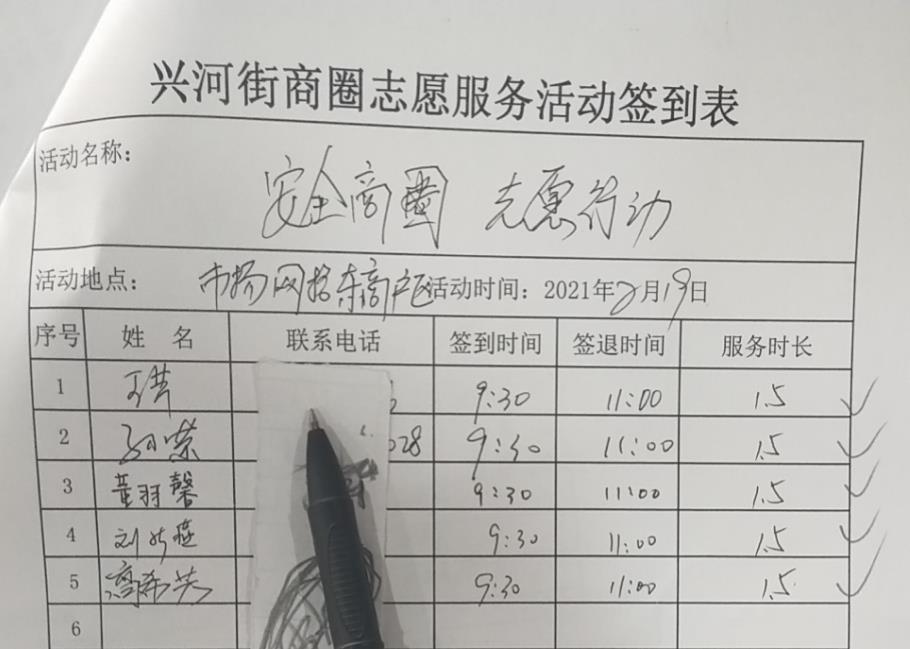 兴河街商圈志愿服务活动签到表
活动名称： 安全商圈 志愿行动
活动地点： 市场网格东商户区 活动时间：2021年2月19日
序号 姓名 联系电话 签到时间 签退时间 服务时长
1 9:30 11:00 1.5
2 孙荣 028 9:30 11:00 1.5
3 黄羽馨 9:30 11:00 1.5
4 9:30 11:00 1.5
5 9:30 11:00 1.5
6